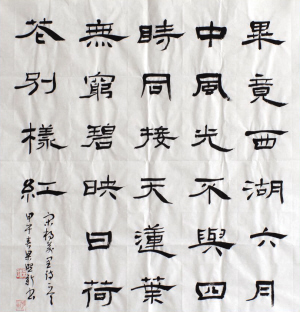 畢竟西湖六月
中風光不與四
時同接天蓮葉
無窮碧映日荷
花別樣紅
宋楊萬里詩一
甲午春